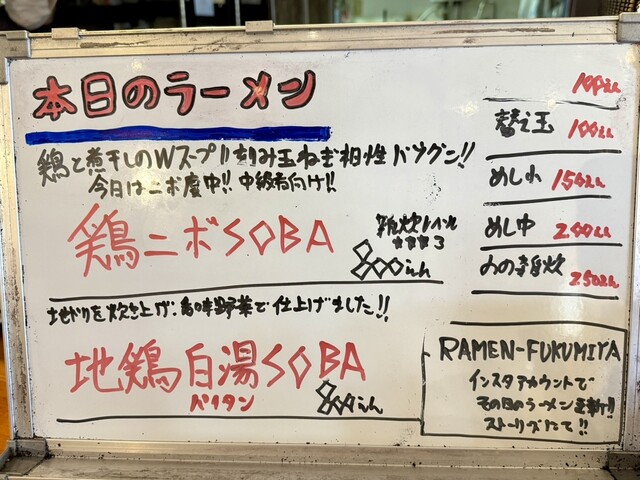 本日のラーメン
鶏と煮干しのWスープ!!刻み玉ねぎ相性バツグン!!
今日はニボ度中!!中級者向け!!
鶏ニボSOBA
800えん
地ドリを炊き上げ、香味野菜で仕上げました!!
地鶏白湯SOBA
パイタン
800えん
100えん
替え玉
100えん
めし小
150えん
めし中
200えん
みの雑炊
250えん
RAMEN-FUKUMIYA
インスタアカウントで
その日のラーメン更新!!
ストーリーズにて!!